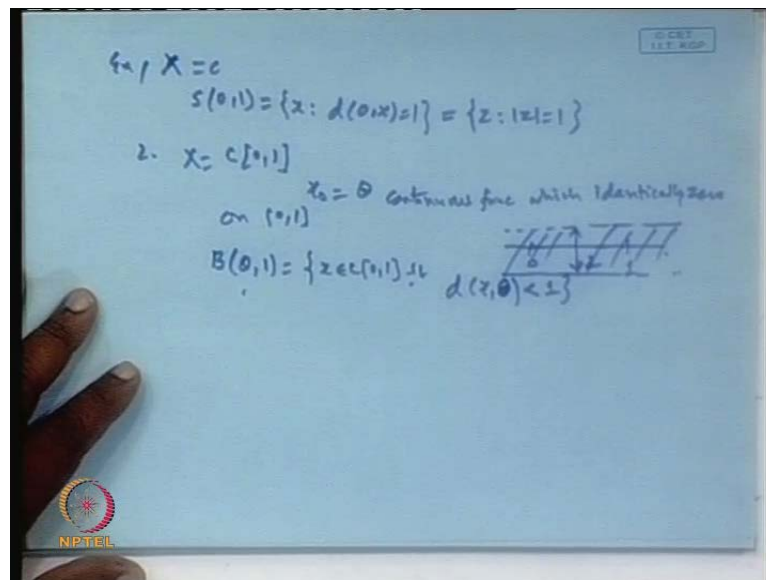 © CET
I.I.T. KGP
Ex, X = C
S(0,1) = {x: d(0,x)=1} = {z: |z|=1}
2. X = C[0,1]
x₀ = θ continuous func which identically zero
on [0,1]
0 1
B(θ,1) = {x ∈ C[0,1] st d(x,θ) < 1}
NPTEL